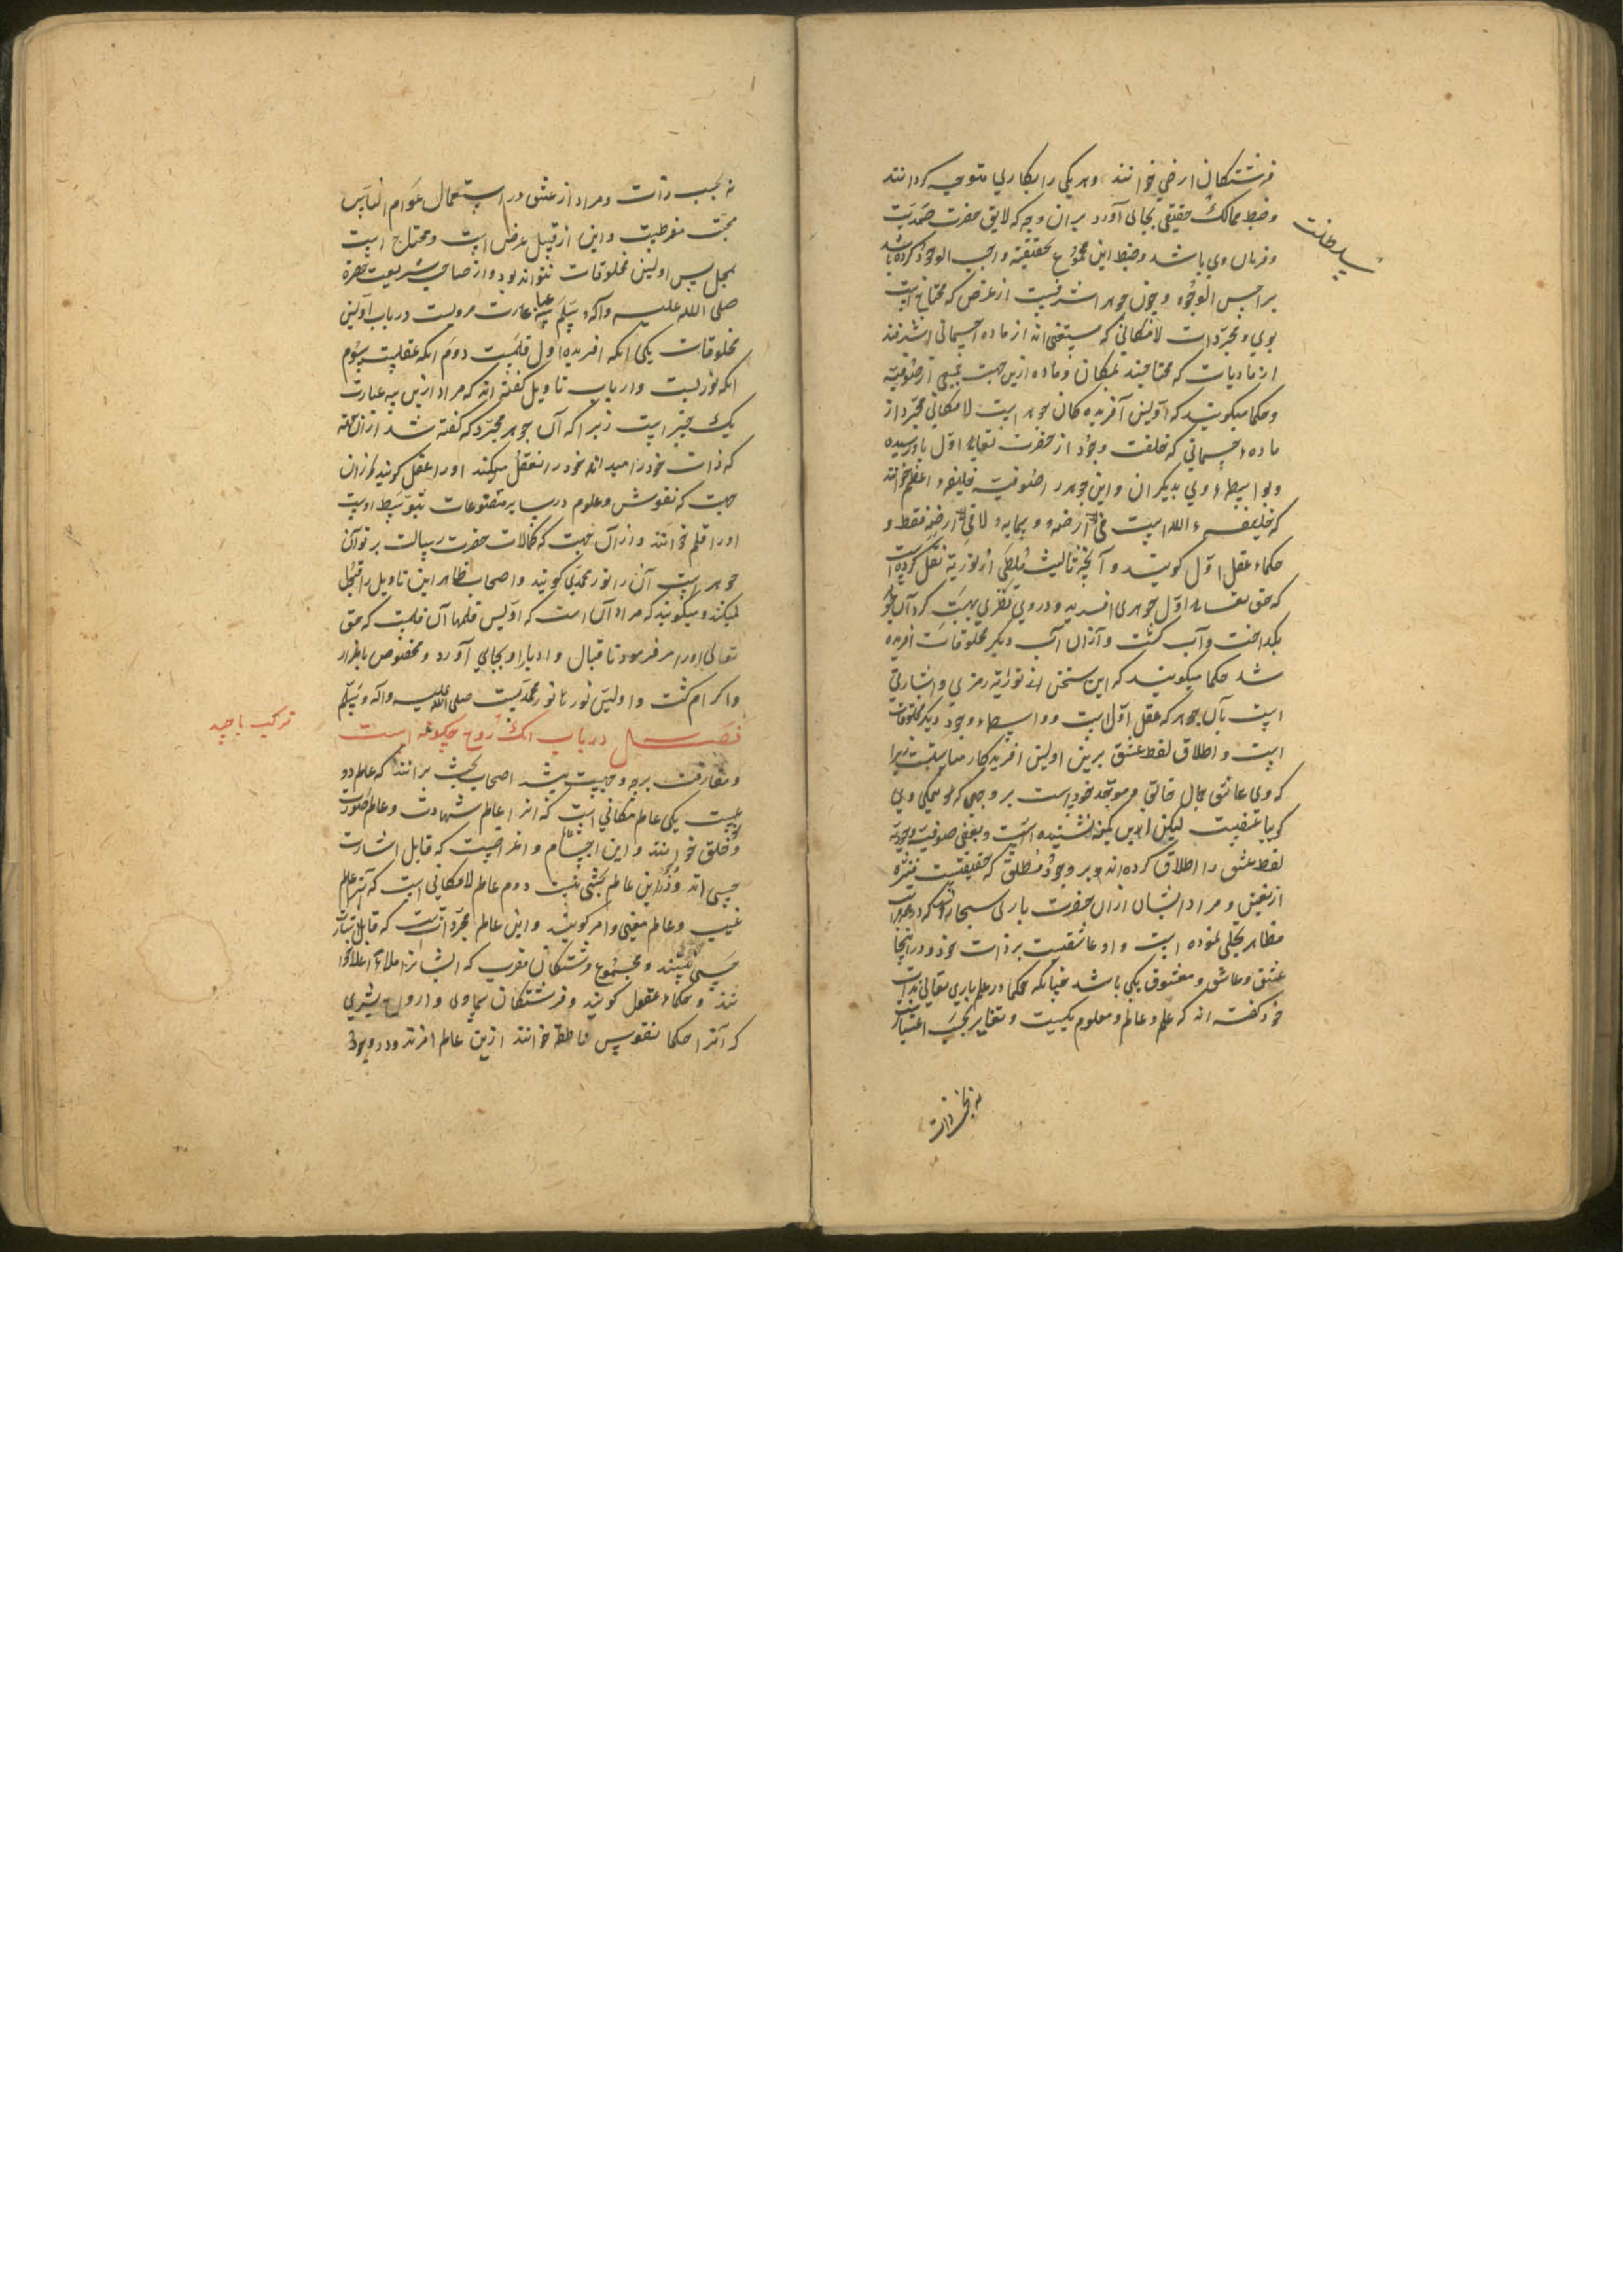 فرشتکان ارضی خوانند و هر یکی را بکاری متوجه کردانند
و ضبط ممالک حقیقی بجای آورد بران وجه که لایق حضرت صمدیت
سلطنت
و فرمان وی باشد و ضبط این مجموع بحقیقة واجب الوجود کرده باشد
بر احسن الوجوه و چون جوهر اشرفست از عرض که محتاج است
بوی و مجردات لامکانی که مستغنی اند از ماده جسمانی اشرفند
از مادیات که محتاجند بمکان و ماده ازین جهت جمعی از صوفیه
و حکما میکویند که اولین آفریده کان جوهر است لامکانی مجرد از
ماده جسمانی که خلعت وجود از حضرت تعالی اول باو رسیده
و بواسطهٔ وی بدیکران و این جوهر را صوفیه خلیفهٔ اعظم خوانند
که خلیفهٔ الله است فی ارضه و سمایه لا فی ارضه فقط و
حکماء عقل اول کویند و آنچه ثالیث ملطی از توریة نقل کرده است
که حق تعالی اول جوهری افرید و در وی نظری بهیبت کرد آن جوهر
بکداخت و آب کشت و از ان آب دیکر مخلوقات افریده
شد حکما میکویند که این سخن از توراة رمزی و اشارتی
است بآن جوهر که عقل اول است و واسطهٔ وجود دیکر مخلوقات
است و اطلاق لفظ عشق برین اولین افریدکار مناسبت زیرا
که وی عاشق جمال خالق و موجد خود است بر وجهی که همکی وی
کویا عشقیست لیکن این کمینه نشنیده است و بعضی صوفیهٔ وجودیه
لفظ عشق را اطلاق کرده اند بر وجود مطلق که حقیقتیست منزه
از تعین و مراد ایشان ازان حضرت باری سبحانه است که در جمیع
مظاهر تجلی نموده است و او عاشقیست بر ذات خود و در اینجا
عشق و عاشق و معشوق یکی باشد چنانکه حکما در علم باری تعالی بذات
خود کفته اند که علم و عالم و معلوم یکیست و تغایر بحسب اعتبارست
نه بحسب ذات
نه بحسب ذات و مراد از عشق در استعمال عوام الناس
محبت مفرطیست و این از قبیل عرض است و محتاج است
بمحل پس اولین مخلوقات نتواند بود و از صاحب شریعت حضرة
صلی الله علیه و آله و سلم سه عبارت مرویست در باب اولین
مخلوقات یکی انکه افریدهٔ اول قلمیست دوم انکه عقلیست سوم
انکه نوریست و ارباب تاویل کفته اند که مراد ازین سه عبارت
یک چیز است زیرا که آن جوهر مجرد که کفته شد از ان جهة
که ذات خود را میداند و خود را تعقل میکند او را عقل کویند و از ان
جهت که نقوش و علوم در سایر مصنوعات بتوسط اوست
او را قلم خوانند و از آن جهت که کمالات حضرت رسالت پرتو آن
جوهر است آن را نور محمدی کویند و اصحاب ظاهر این تاویل را قبول
نمیکنند و میکویند که مراد آن است که اولین قلمها آن قلمیست که حق
تعالی او را امر فرمود تا اقبال و ادبار او بجای آورد و مخصوص باعزاز
و اکرام کشت و اولین نورها نور محمدیست صلی الله علیه و آله و سلم
فصل در باب انک روح چکونه است
ترکیب با جسد
و مفارقت بر چه وجهیست بشد اصحاب بحث برانند که عالم دو
عیست یکی عالم مکانی است که انرا عالم شهادت و عالم صورت
و خلق خوانند و این عالم اجسام و اعراضیست که قابل اشارت
حسی اند و ورای این عالم بیشی نیست دوم عالم لامکانی است که انرا عالم
غیب و عالم معنی و امر کویند و این عالم مجردات است که قابل اشارت
حسی نیستند و مجموع فرشتکان مقرب که ایشانرا ملاء اعلا خوا
نند و حکماء عقول کویند و فرشتکان سماوی و ارواح بشری
که آنرا حکما نفوس ناطقه خوانند ازین عالم اند و در وجود